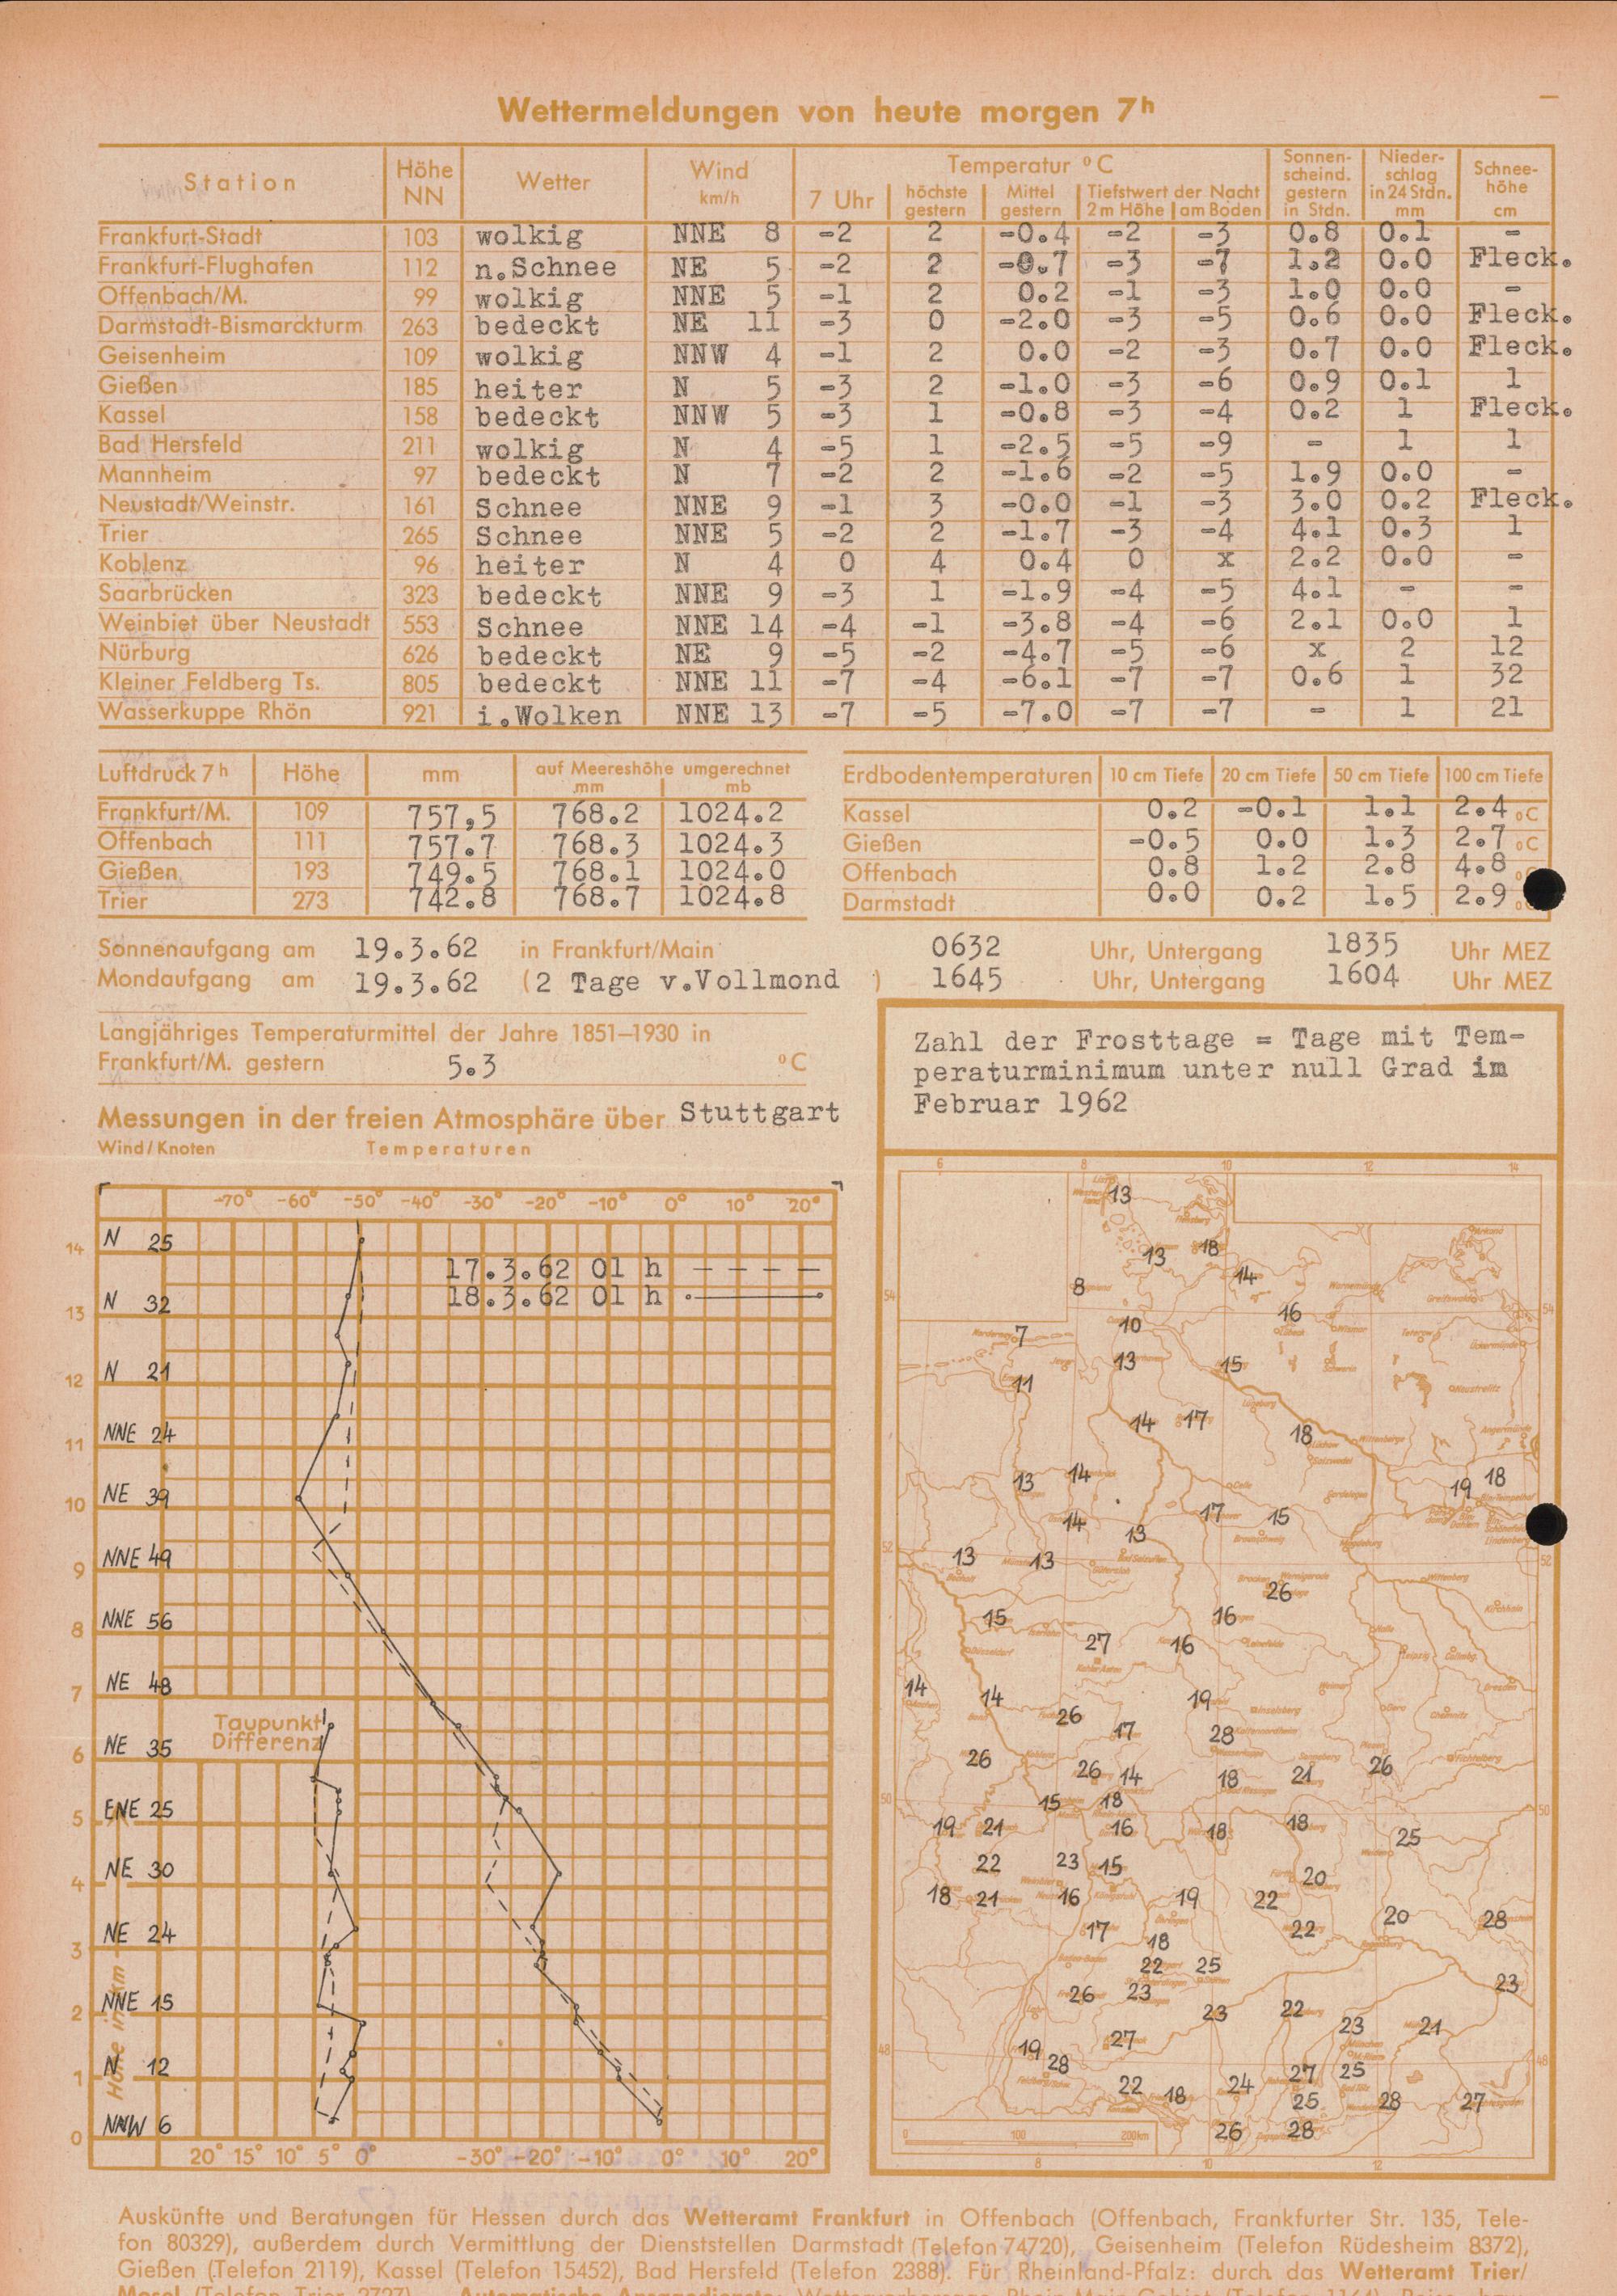 Wettermeldungen von heute morgen 7h
Station Höhe NN Wetter Wind km/h Temperatur °C Sonnenscheind. gestern in Stdn. Niederschlag in 24 Stdn. mm Schneehöhe cm
7 Uhr höchste gestern Mittel gestern Tiefstwert der Nacht 2 m Höhe am Boden
Frankfurt-Stadt 103 wolkig NNE 8 -2 2 -0.4 -2 -3 0.8 0.1 -
Frankfurt-Flughafen 112 n.Schnee NE 5 -2 2 -0.7 -3 -7 1.2 0.0 Fleck.
Offenbach/M. 99 wolkig NNE 5 -1 2 0.2 -1 -3 1.0 0.0 -
Darmstadt-Bismarckturm 263 bedeckt NE 11 -3 0 -2.0 -3 -5 0.6 0.0 Fleck.
Geisenheim 109 wolkig NNW 4 -1 2 0.0 -2 -3 0.7 0.0 Fleck.
Gießen 185 heiter N 5 -3 2 -1.0 -3 -6 0.9 0.1 1
Kassel 158 bedeckt NNW 5 -3 1 -0.8 -3 -4 0.2 1 Fleck.
Bad Hersfeld 211 wolkig N 4 -5 1 -2.5 -5 -9 - 1 1
Mannheim 97 bedeckt N 7 -2 2 -1.6 -2 -5 1.9 0.0 -
Neustadt/Weinstr. 161 Schnee NNE 9 -1 3 -0.0 -1 -3 3.0 0.2 Fleck.
Trier 265 Schnee NNE 5 -2 2 -1.7 -3 -4 4.1 0.3 1
Koblenz 96 heiter N 4 0 4 0.4 0 x 2.2 0.0 -
Saarbrücken 323 bedeckt NNE 9 -3 1 -1.9 -4 -5 4.1 - -
Weinbiet über Neustadt 553 Schnee NNE 14 -4 -1 -3.8 -4 -6 2.1 0.0 1
Nürburg 626 bedeckt NE 9 -5 -2 -4.7 -5 -6 x 2 12
Kleiner Feldberg Ts. 805 bedeckt NNE 11 -7 -4 -6.1 -7 -7 0.6 1 32
Wasserkuppe Rhön 921 i.Wolken NNE 13 -7 -5 -7.0 -7 -7 - 1 21
Luftdruck 7h Höhe mm auf Meereshöhe umgerechnet mm mb
Frankfurt/M. 109 757,5 768.2 1024.2
Offenbach 111 757.7 768.3 1024.3
Gießen 193 749.5 768.1 1024.0
Trier 273 742.8 768.7 1024.8
Erdbodentemperaturen 10 cm Tiefe 20 cm Tiefe 50 cm Tiefe 100 cm Tiefe
Kassel 0.2 -0.1 1.1 2.4 °C
Gießen -0.5 0.0 1.3 2.7 °C
Offenbach 0.8 1.2 2.8 4.8
Darmstadt 0.0 0.2 1.5 2.9
Sonnenaufgang am 19.3.62 in Frankfurt/Main 0632 Uhr, Untergang 1835 Uhr MEZ
Mondaufgang am 19.3.62 (2 Tage v.Vollmond ) 1645 Uhr, Untergang 1604 Uhr MEZ
Langjähriges Temperaturmittel der Jahre 1851–1930 in
Frankfurt/M. gestern 5.3 °C
Messungen in der freien Atmosphäre über Stuttgart
Wind/Knoten Temperaturen
-70° -60° -50° -40° -30° -20° -10° 0° 10° 20°
14 N 25
17.3.62 01 h
18.3.62 01 h
13 N 32
12 N 21
11 NNE 24
10 NE 39
9 NNE 49
8 NNE 56
7 NE 48
Taupunkt
Differenz
6 NE 35
5 ENE 25
4 NE 30
3 NE 24
2 NNE 15
1 N 12
0 NNW 6
Höhe in km
20° 15° 10° 5° 0° -30° -20° -10° 0° 10° 20°
Zahl der Frosttage = Tage mit Tem-
peraturminimum unter null Grad im
Februar 1962
6 8 10 12 14
13
13 18
8 14
54 16 54
7 10
11 13 15
14 17 18
13 14 19 18
14 13 17 15
52 13 13 52
26
15 16
27 16
14 14 19
26 17 28
26 26 14 18 21 26
50 15 18 50
19 21 16 18 18 25
22 23 15 20
18 21 16 19 22
17 18 22 20 28
22 25
26 23 23
23 22 23 21
48 19 28 27 27 25 48
22 18 24 25 28 27
26 28
0 100 200km
8 10 12
Auskünfte und Beratungen für Hessen durch das Wetteramt Frankfurt in Offenbach (Offenbach, Frankfurter Str. 135, Tele-
fon 80329), außerdem durch Vermittlung der Dienststellen Darmstadt (Telefon 74720), Geisenheim (Telefon Rüdesheim 8372),
Gießen (Telefon 2119), Kassel (Telefon 15452), Bad Hersfeld (Telefon 2388). Für Rheinland-Pfalz: durch das Wetteramt Trier/